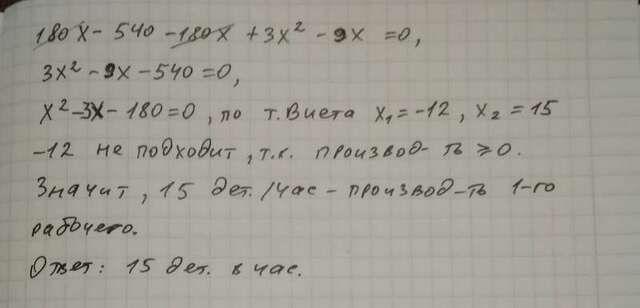 180x - 540 - 180x + 3x² - 9x = 0,
3x² - 9x - 540 = 0,
x² - 3x - 180 = 0, по т. Виета x₁ = -12, x₂ = 15
-12 не подходит, т.к. производ-ть ≥ 0.
Значит, 15 дет./час - производ-ть 1-го
рабочего.
Ответ: 15 дет. в час.